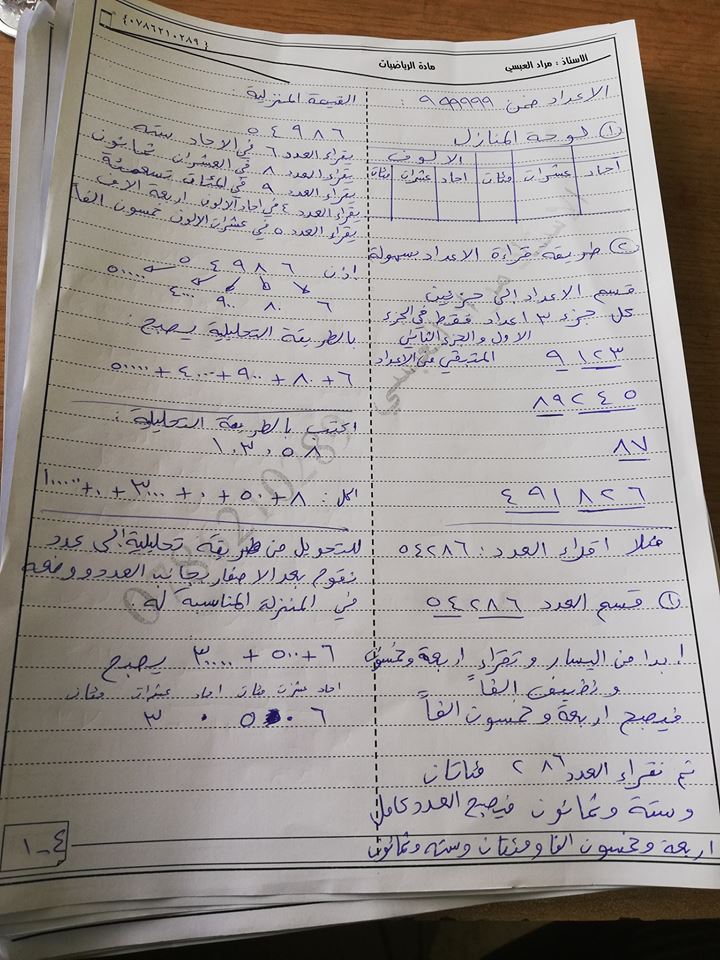 { ٠٧٨٦٢١٠٢٨٩ }
الاستاذ : مراد العبسي
مادة الرياضيات
الاعداد ضمن ٩٩٩٩٩٩ :
① لوحة المنازل
الالوف
احاد عشرات مئات احاد عشرات مئات
② طريقة قراءة الاعداد بسهولة
قسم الاعداد الى جزئين
كل جزء ٣ اعداد فقط في الجزء
الاول و الجزء الثاني
المتبقي من الاعداد
٩ ١٢٣
٨٩ ٢٤٥
٨٧
٤٩١ ٨٢٦
مثلا اقراء العدد : ٥٤٢٨٦
① قسم العدد ٥٤ ٢٨٦
ابدا من اليسار و تقراء اربعة وخمسون
و نظيف الفاً
فيصبح اربعة و خمسون الفاً
ثم نقراء العدد ٢٨٦ مئتان
و ستة و ثمانون فيصبح العدد كامل
اربعة وخمسون الفا ومئتان وسته وثمانون
القيمة المنزلية :
٥٤٩٨٦
يقراء العدد ٦ في الاحاد سته
يقراء العدد ٨ في العشرات ثمانون
يقراء العدد ٩ في المئات تسعمئة
يقراء العدد ٤ في احاد الالوف اربعة الاف
يقراء العدد ٥ في عشرات الالوف خمسون الفاً
اذن ٥٤٩٨٦
٥٠٠٠٠ ٤٠٠٠ ٩٠٠ ٨٠ ٦
بالطريقة التحليلية يصبح :
٦ + ٨٠ + ٩٠٠ + ٤٠٠٠ + ٥٠٠٠٠
اكتب بالطريقة التحليلية :
١٠٣٠٥٨
الحل : ٨ + ٥٠ + ٠ + ٣٠٠٠ + ٠ + ١٠٠٠٠٠
للتحويل من طريقة تحليلية الى عدد
نقوم بعد الاصفار بجانب العدد ووضعه
في المنزلة المناسبة له :
٦ + ٥٠٠ + ٣٠٠٠٠ يصبح
احاد عشرات مئات احاد عشرات مئات
٦ ٠ ٥ ٠ ٣
١ - ٤